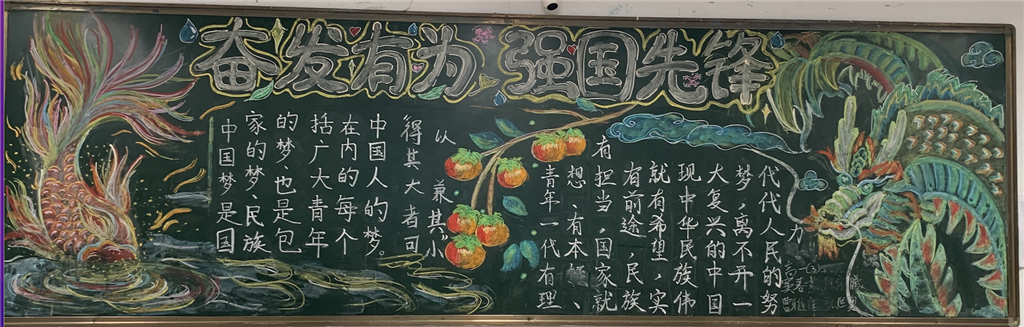 奋发有为 强国先锋
中国梦是国
家的梦、民族
的梦也是包
括广大青年
在内的每个
中国人的梦。
得其大者可
以兼其小
青年一代有理
想、有本、
有担当,国家就
有前途,民族
就有希望,实
现中华民族伟
大复兴的中国
梦,离不开一
代代人民的努
力